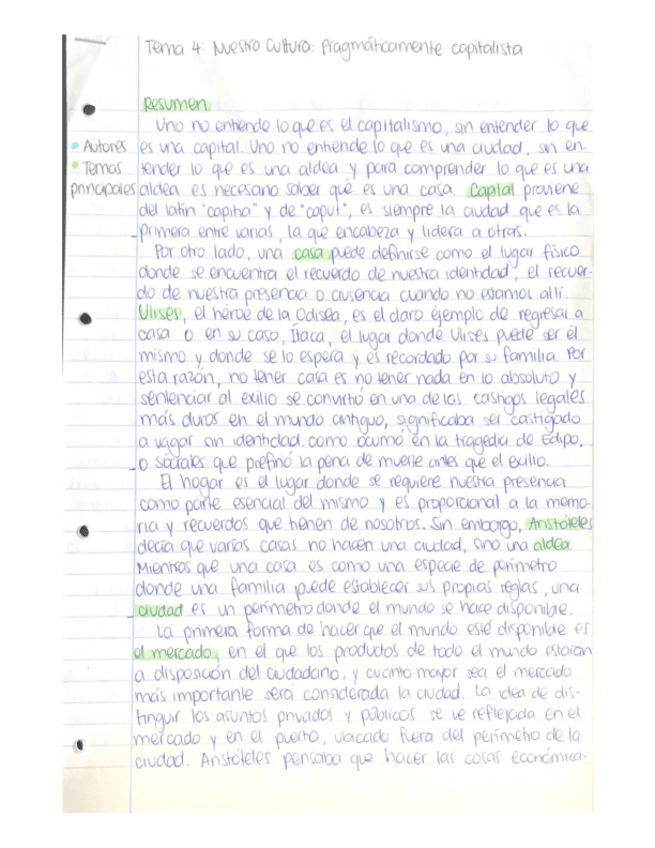 Tema 4: Nuestra Cultura: pragmáticamente capitalista
Resumen
Uno no entiende lo que es el capitalismo, sin entender lo que
Autores
es una capital. Uno no entiende lo que es una ciudad, sin en
Temas principales
tender lo que es una aldea y para comprender lo que es una
aldea es necesario saber qué es una casa. Capital proviene
del latín "capitia" y de "caput", es siempre la ciudad que es la
primera entre varias, la que encabeza y lidera a otras.
Por otro lado, una casa puede definirse como el lugar físico
donde se encuentra el recuerdo de nuestra identidad, el recuer-
do de nuestra presencia o ausencia cuando no estamos allí.
Ulises, el héroe de la Odisea, es el claro ejemplo de regresar a
casa o en su caso, Ítaca, el lugar donde Ulises puede ser él
mismo y donde se lo espera y es recordado por su familia. Por
esta razón, no tener casa es no tener nada en lo absoluto y
sentenciar al exilio se convirtió en una de los castigos legales
más duros en el mundo antiguo, significaba ser castigado
a vagar sin identidad. como ocurrió en la tragedia de Edipo,
o sócrates que prefirió la pena de muerte antes que el exilio.
El hogar es el lugar donde se requiere nuestra presencia
como parte esencial del mismo y es proporcional a la memo-
ria y recuerdos que tienen de nosotros. Sin embargo, Aristóteles
decía que varias casas no hacen una ciudad, sino una aldea.
Mientras que una casa es como una especie de perímetro
donde una familia puede establecer sus propias reglas, una
ciudad es un perímetro donde el mundo se hace disponible.
La primera forma de hacer que el mundo esté disponible es
el mercado, en el que los productos de todo el mundo estarán
a disposición del ciudadano, y cuanto mayor sea el mercado
más importante será considerada la ciudad. La idea de dis-
tinguir los asuntos privados y públicos se ve reflejada en el
mercado y en el puerto, ubicado fuera del perímetro de la
ciudad. Aristóteles pensaba que hacer las cosas económica-